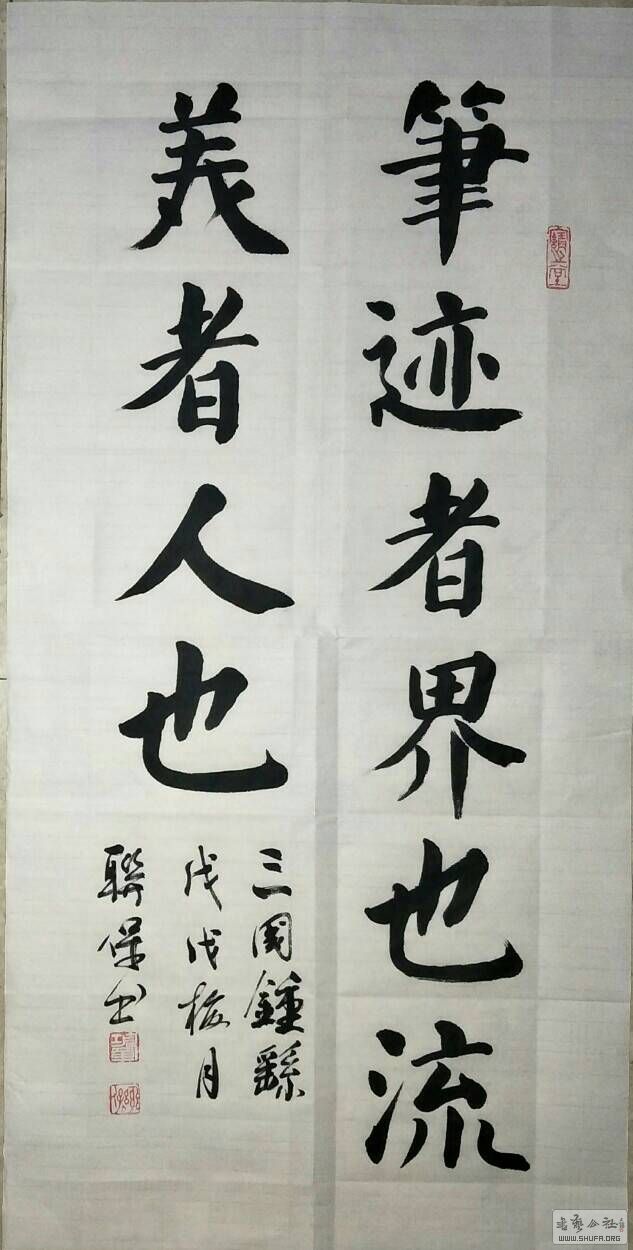 筆迹者界也流
美者人也
三國鍾繇
戊戌梅月
聯保書
WWW.SHUFA.ORG